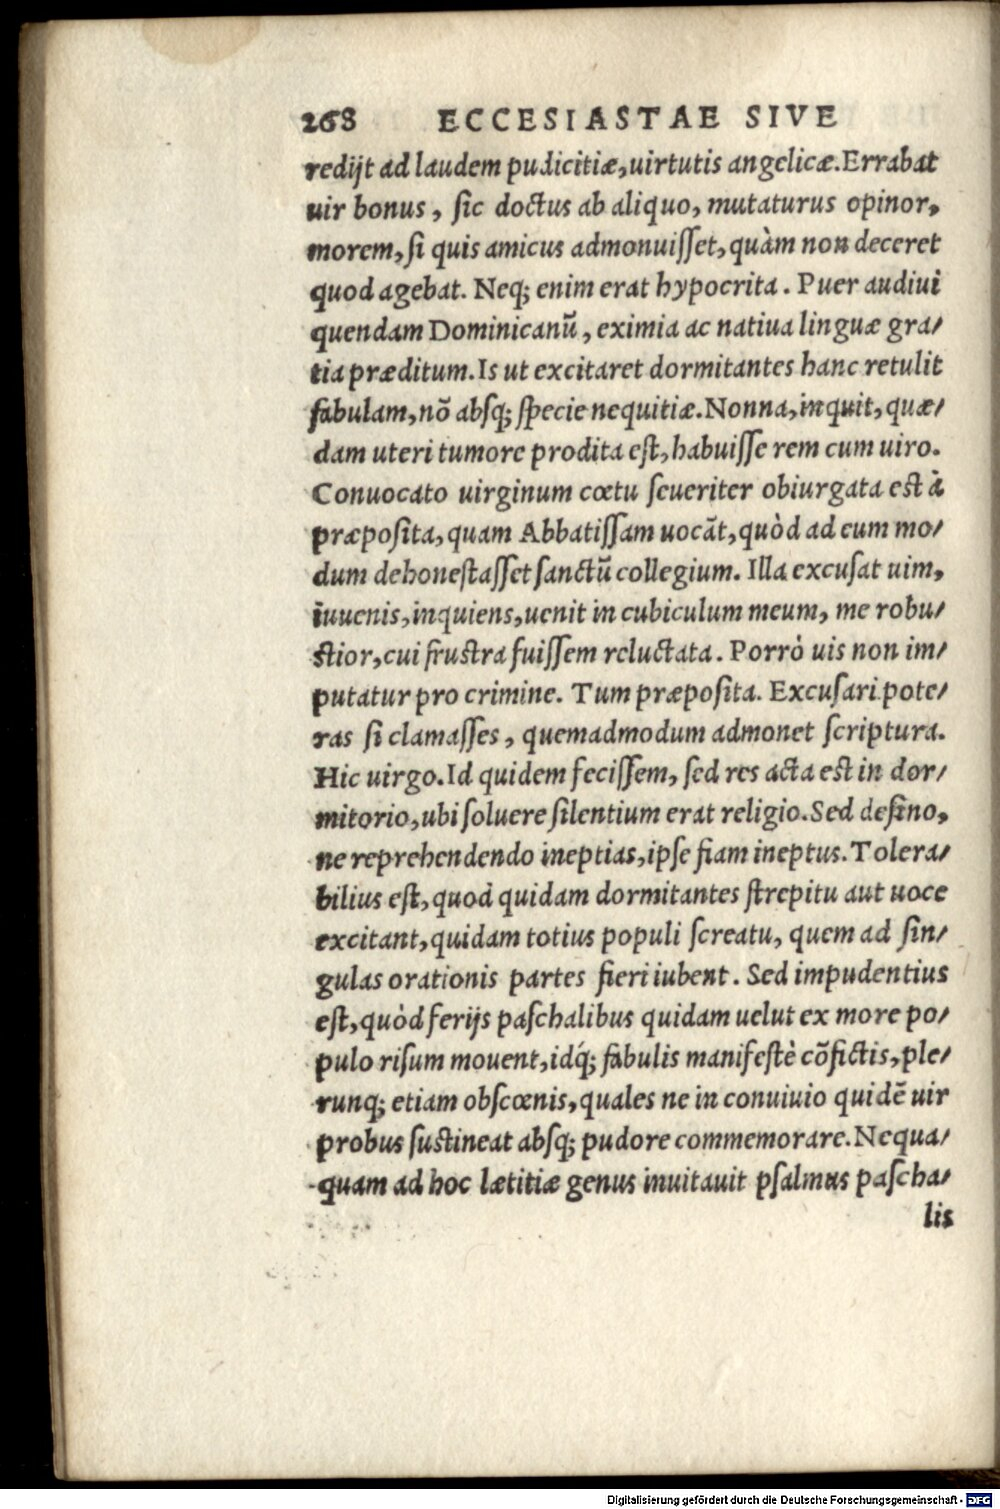 268 ECCESIASTAE SIVE
redijt ad laudem pudicitiæ,uirtutis angelicæ.Errabat
uir bonus, sic doctus ab aliquo, mutaturus opinor,
morem, si quis amicus admonuisset, quàm non deceret
quod agebat. Neq; enim erat hypocrita. Puer audiui
quendam Dominicanū, eximia ac natiua linguæ gra/
tia præditum. Is ut excitaret dormitantes hanc retulit
fabulam, nō absq; specie nequitiæ. Nonna, inquit, quæ/
dam uteri tumore prodita est, habuisse rem cum uiro.
Conuocato uirginum cœtu seueriter obiurgata est à
præposita, quam Abbatissam uocāt, quòd ad eum mo/
dum dehonestasset sanctū collegium. Illa excusat uim,
iuuenis, inquiens, uenit in cubiculum meum, me robu/
stior, cui frustra fuissem reluctata. Porrò uis non im/
putatur pro crimine. Tum præposita. Excusari pote/
ras si clamasses, quemadmodum admonet scriptura.
Hic uirgo. Id quidem fecissem, sed res acta est in dor/
mitorio, ubi soluere silentium erat religio. Sed desino,
ne reprehendendo ineptias, ipse fiam ineptus. Tolera/
bilius est, quod quidam dormitantes strepitu aut uoce
excitant, quidam totius populi screatu, quem ad sin/
gulas orationis partes fieri iubent. Sed impudentius
est, quòd ferijs paschalibus quidam uelut ex more po/
pulo risum mouent, idq́; fabulis manifestè cōfictis, ple/
runq; etiam obscœnis, quales ne in conuiuio quidē uir
probus sustineat absq; pudore commemorare. Nequa/
quam ad hoc lætitiæ genus inuitauit psalmus pascha/
lis
Digitalisierung gefördert durch die Deutsche Forschungsgemeinschaft - DFG